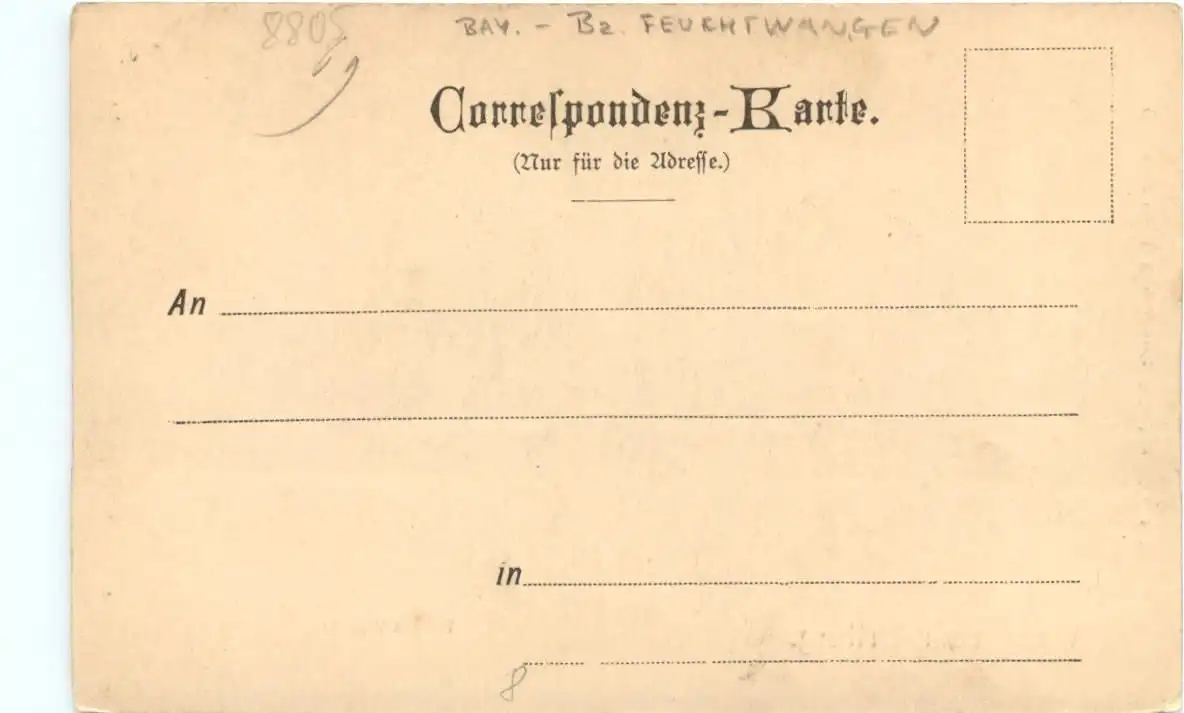 8805
BAY. - Bz. FEUCHTWANGEN
Correſpondenz-Karte.
(Nur für die Adreſſe.)
An
in
8